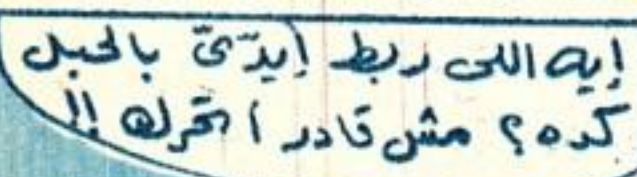 إيه اللى ربط إيدىّ بالحبل
كده ؟ مش قادر اتحرك !!